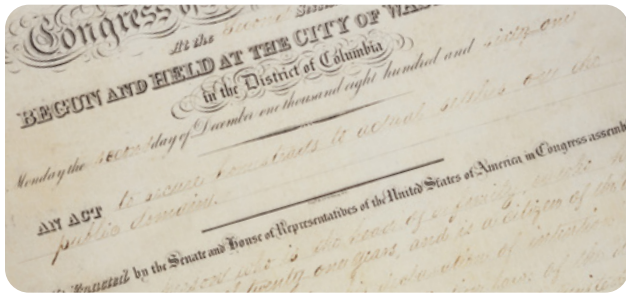 Congress of
At the Second Sess
BEGUN AND HELD AT THE CITY OF WAS
in the District of Columbia
Monday the second day of December one thousand eight hundred and sixty one
AN ACT to secure homesteads to actual settlers on the
public domain.
Enacted by the Senate and House of Representatives of the United States of America in Congress assemb
person who is the head of a family, or who h
of twenty one years, and is a citizen of the
declaration of intention